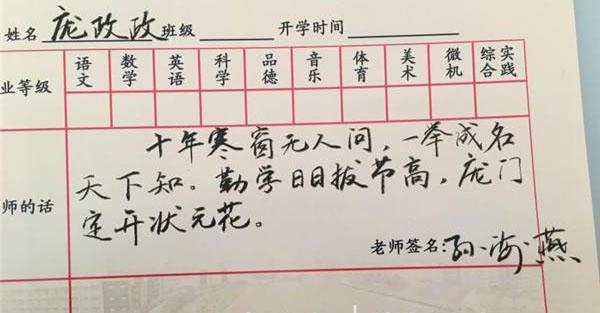 姓名 庞政政 班级 开学时间
业等级 语文 数学 英语 科学 品德 音乐 体育 美术 微机 综合实践
十年寒窗无人问，一举成名
天下知。勤学日日拔节高，庞门
师的话
定开状元花。
老师签名：孙海燕